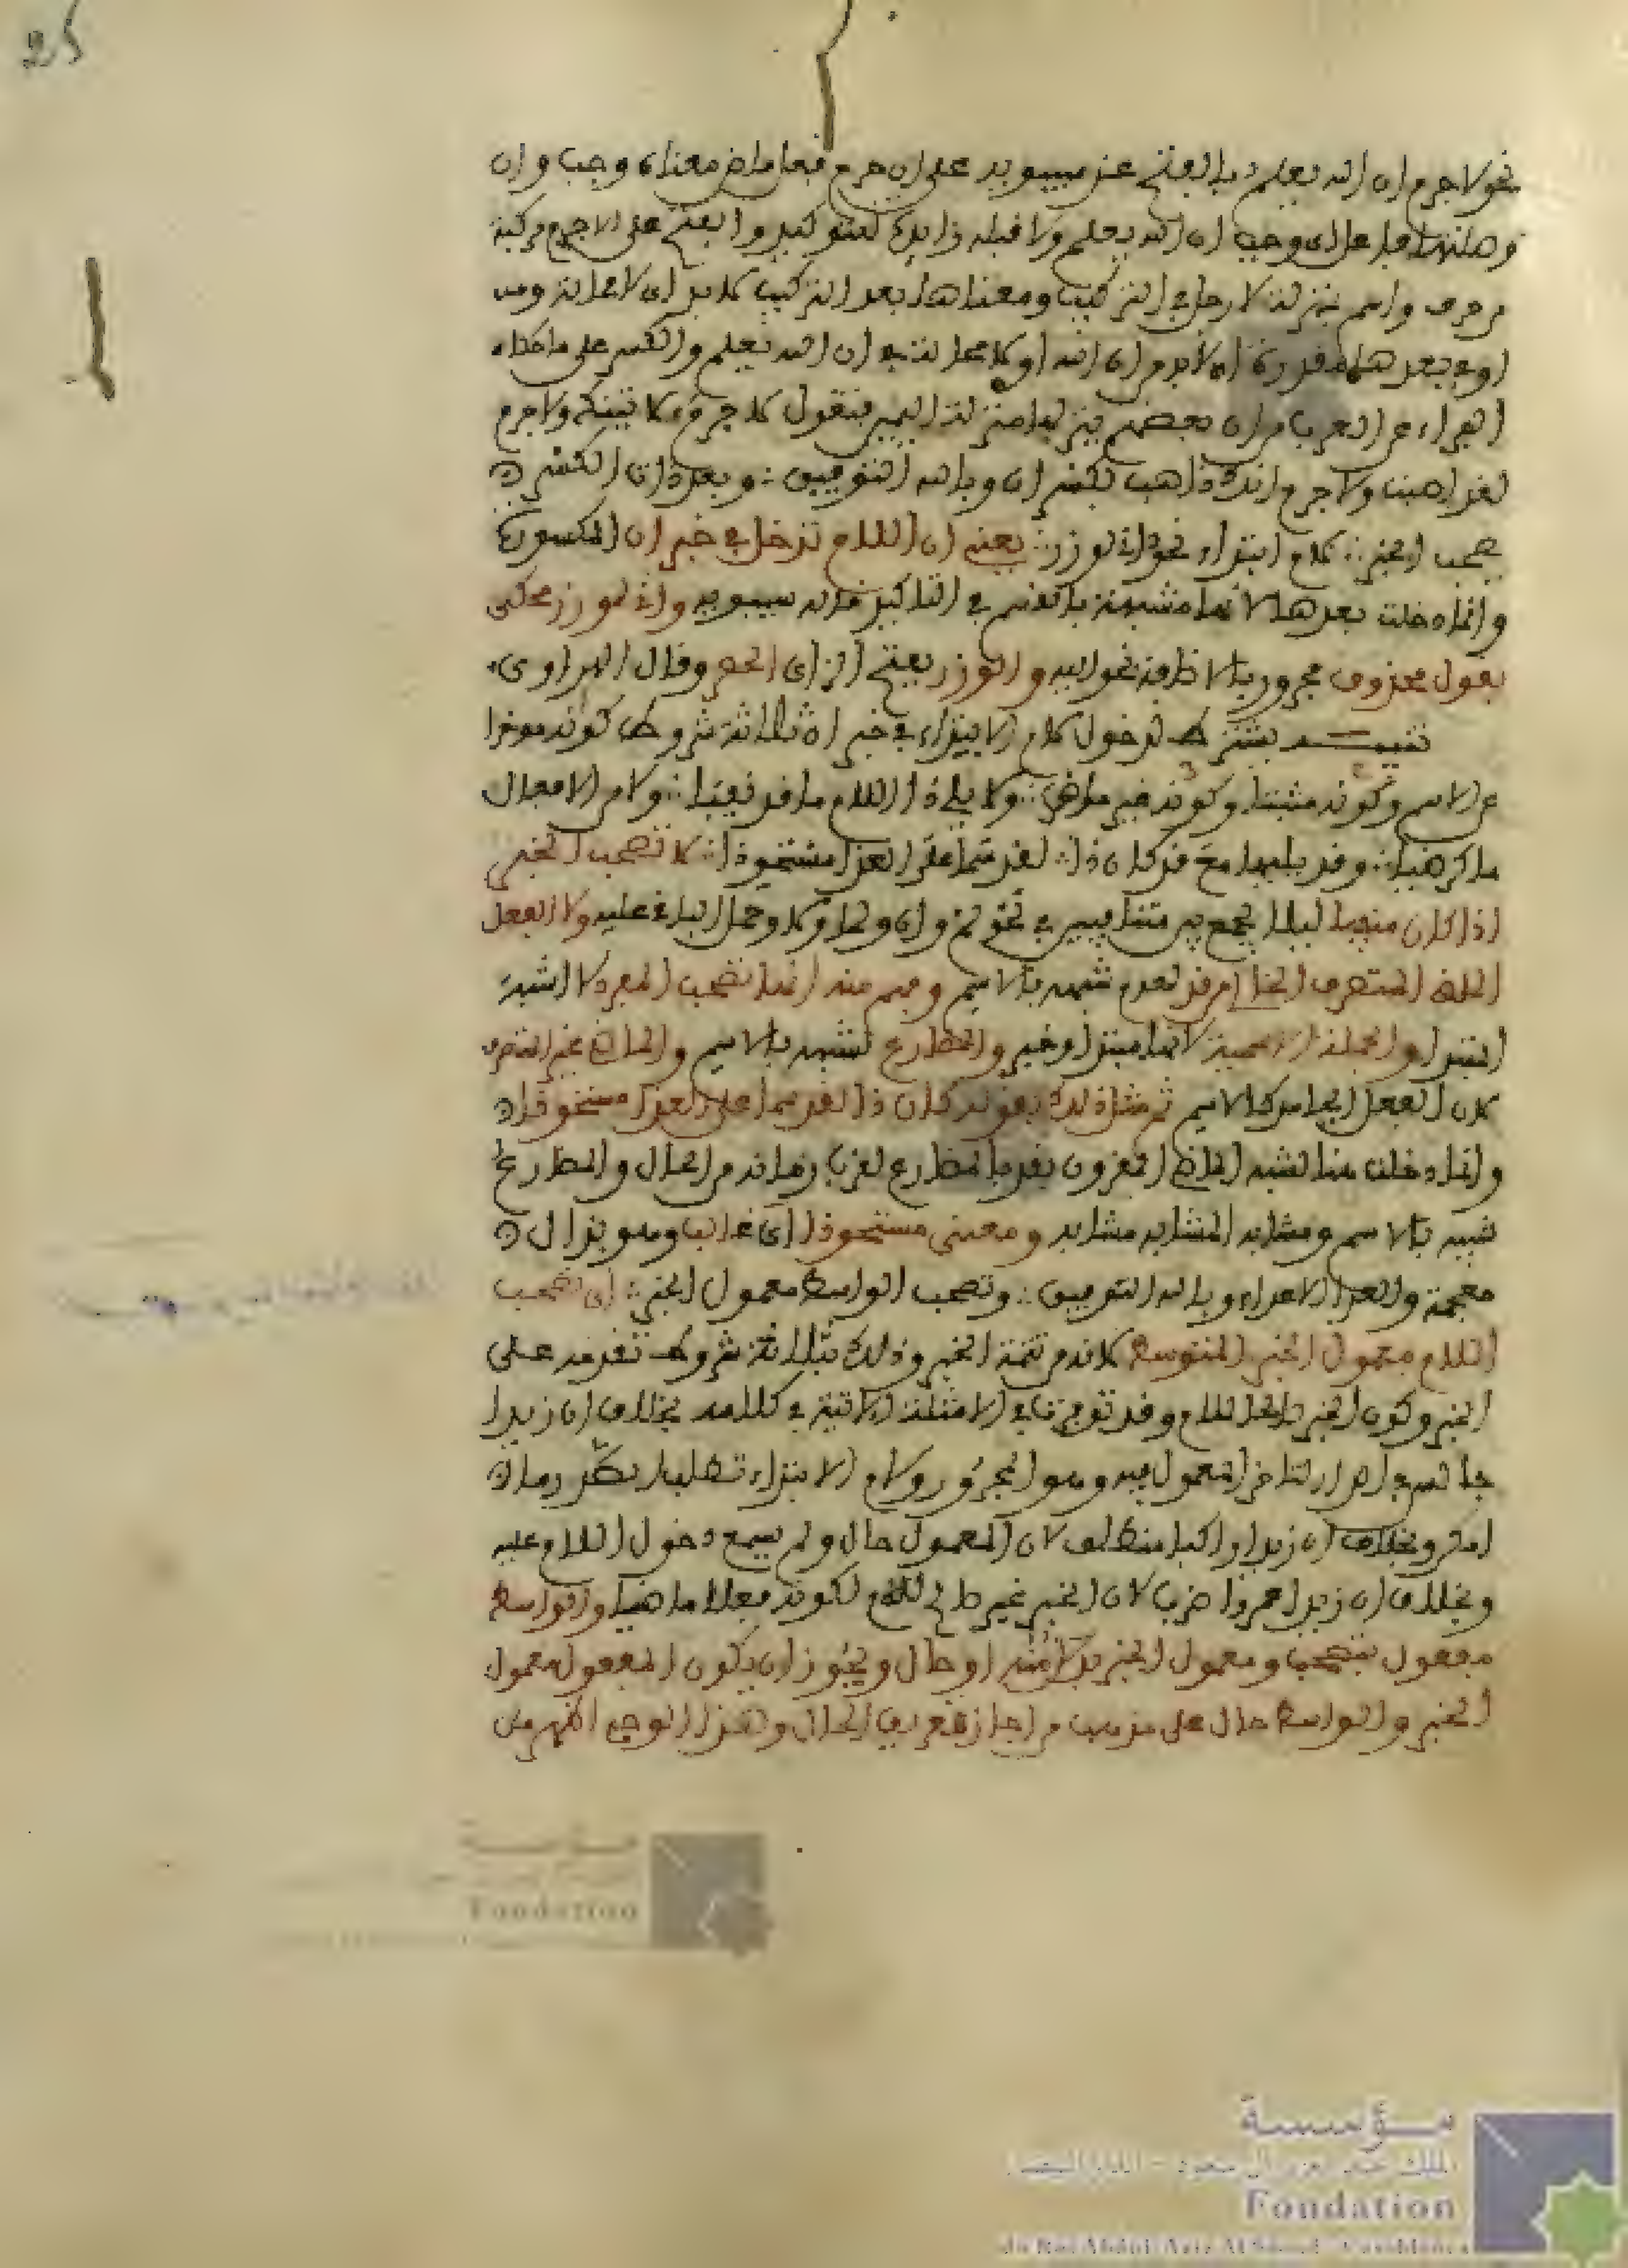 25
نحو لا جرم ان الله يعلم بالفتح عند سيبويه على ان جرم فعل ماض معناه وجب وان
وصلتها فاعل اي وجب ان الله يعلم ولا قبله زايدة للتوكيد والفتح على لا جرم مركبة
من حرف واسم بمنزلة لا رجل في التركيب ومعناها بعد التركيب لا بد اي لا محالة ومن
او في بعدها مقدرة اي لا بد من ان الله او لا محالة في ان الله يعلم والكسر على ما حكاه
الفراء عن العرب من ان بعضهم ينزلها منزلة اليمين فيقول لا جرم لا تينك ولا جرم
لقد احسنت ولا جرم انك ذاهب بكسر ان وبالله التوفيق وبعد ذات الكسر
تصحب الخبر لام ابتداء نحو اني لوزر يعني ان اللام تدخل في خبر ان المكسورة
وانما دخلت بعدها لانها مشبهة بالقسم في التاكيد قاله سيبويه واني لوزر محكي
بقول محذوف مجرور بالاضافة نحو اليه والوزر بفتح الزاي الحصن وقال المرادي
تنبيه يشترط لدخول لام الابتداء في خبر ان ثلاثة شروط كونه موخرا
عن الاسم وكونه مثبتا وكونه غير ماض ولا يلي ذا اللام ما قد نفيا ولا من الافعال
ما كرضيا وقد يليها مع قد كان ذا لقد سما على العدا مستحوذا لا تصحب الخبر
اذا كان منفيا ليلا يجمع بين متنافيين في نحو لم ولن ولما ولا وحمل الباقي عليه ولا الفعل
الماضي المتصرف الخالي من قد لعدم شبهه بالاسم وفهم منه انها تصحب المفرد لا شبه
المبتدا والجملة الاسمية لانها مبتدا وخبر والمضارع لشبهه بالاسم والماضي غير المتصرف
لان الفعل الجامد كالاسم ثم مثل ذلك بقوله كان ذا لقد سما على العدا مستحوذا
وانما دخلت هنا لشبه الماضي المقرون بقد بالمضارع لقرب زمانه من الحال والمضارع
شبيه بالاسم ومشابه المشابه مشابه ومعنى مستحوذا اي غالبا وهو بذال
معجمة والعدا الاعداء وبالله التوفيق وتصحب الواسط معمول الخبر اي تصحب
اللام معمول الخبر المتوسط لانه من تتمة الخبر وذلك بثلاثة شروط تقدمه على
الخبر وكون الخبر صالحا للام وقد توجد في الامثلة الاتية في كلامه بخلاف ان زيدا
جالس في الدار لتاخر المعمول فيه وهو المجرور ولام الابتداء تطلب الصدر ما
امكن وبخلاف ان زيدا راكبا منطلق لان المعمول حال ولم يسمع دخول اللام عليه
وبخلاف ان زيدا عمرا ضرب لان الخبر غير صالح للام لكونه فعلا ماضيا والواسط
مفعول بتصحب ومعمول الخبر بدل منه او حال ويجوز ان يكون المفعول معمول
الخبر والواسط حال على مذهب من اجاز تعريف الحال وهذا الوجه اظهر من
مؤسسة
Fondation
مؤسسة
Fondation